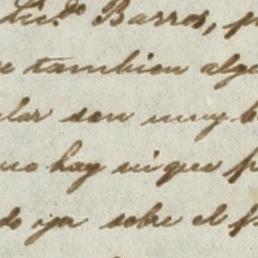 Licdo Barros, p
e tambien alg
lar son muy b
no hay ni que p
do ya sobre el p